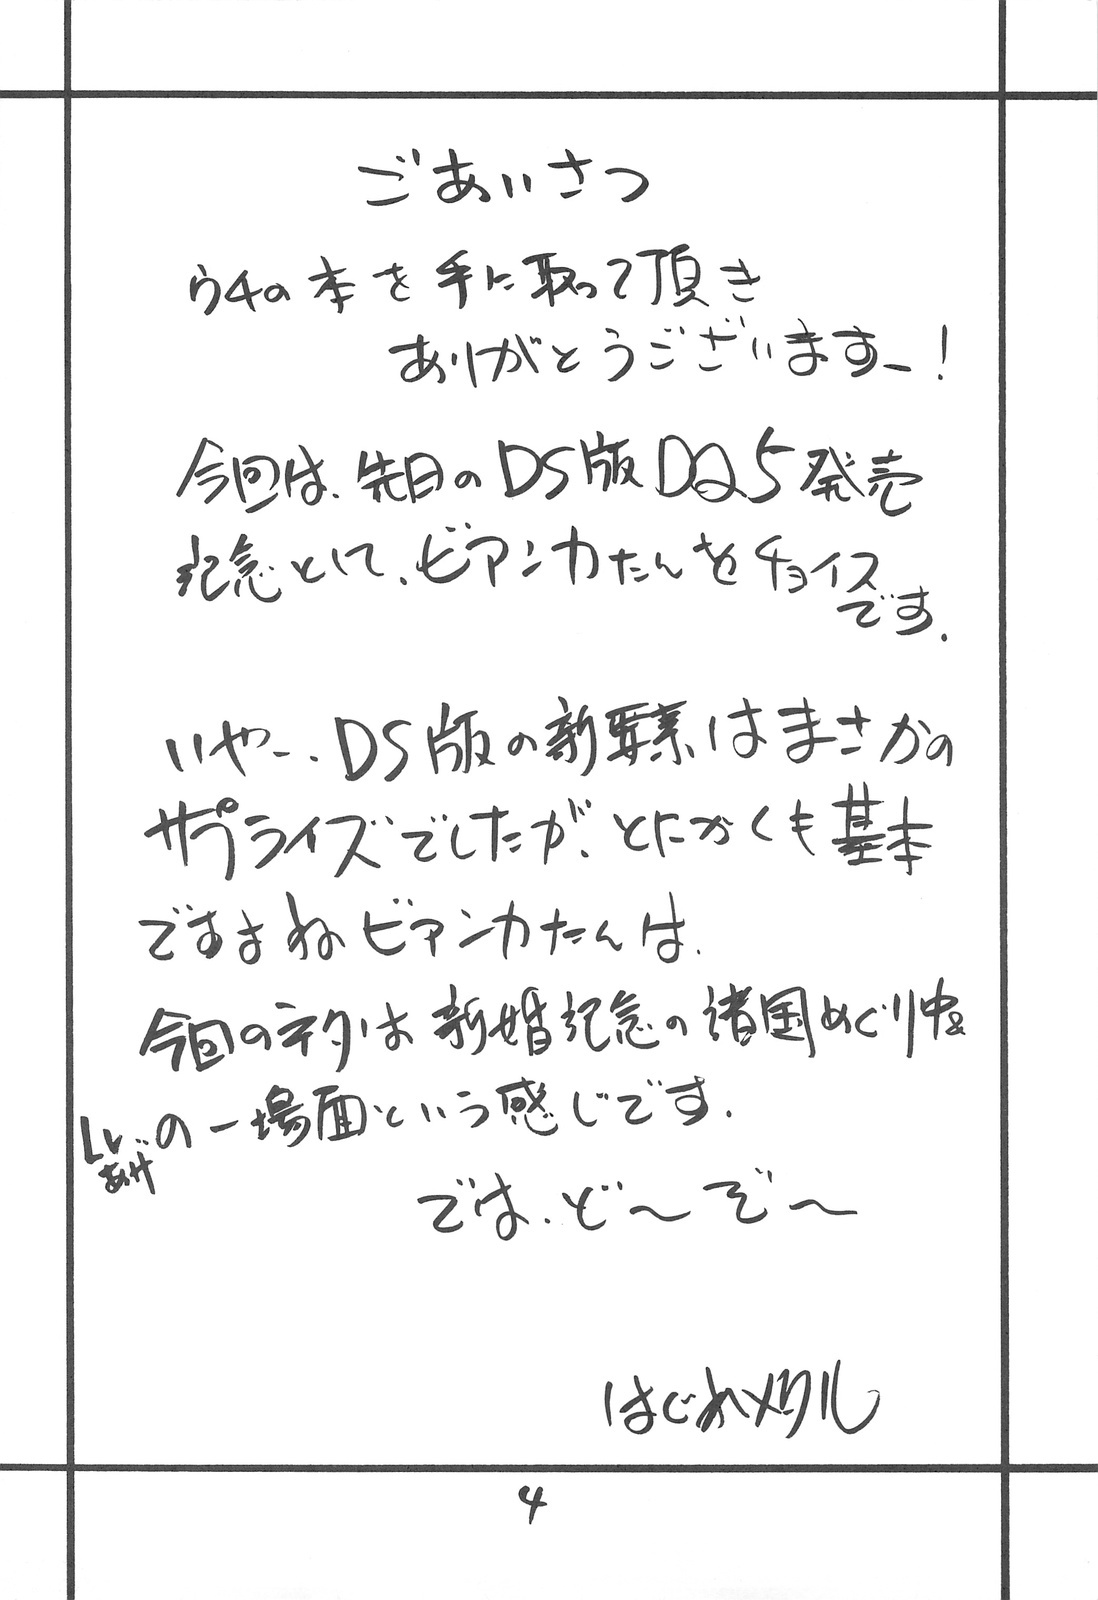 ごあいさつ
ウチの本を手に取って頂き
ありがとうございますー!
今回は、先日のDS版DQ5発売
記念として、ビアンカたんをチョイス
です.
いやー、DS版の新要素はまさかの
サプライズでしたが、とにかくも基本
ですよねビアンカたんは.
今回のネタは新婚記念の諸国めぐり中
の一場面という感じです.
では、ど〜ぞ〜
はじめメタル
4